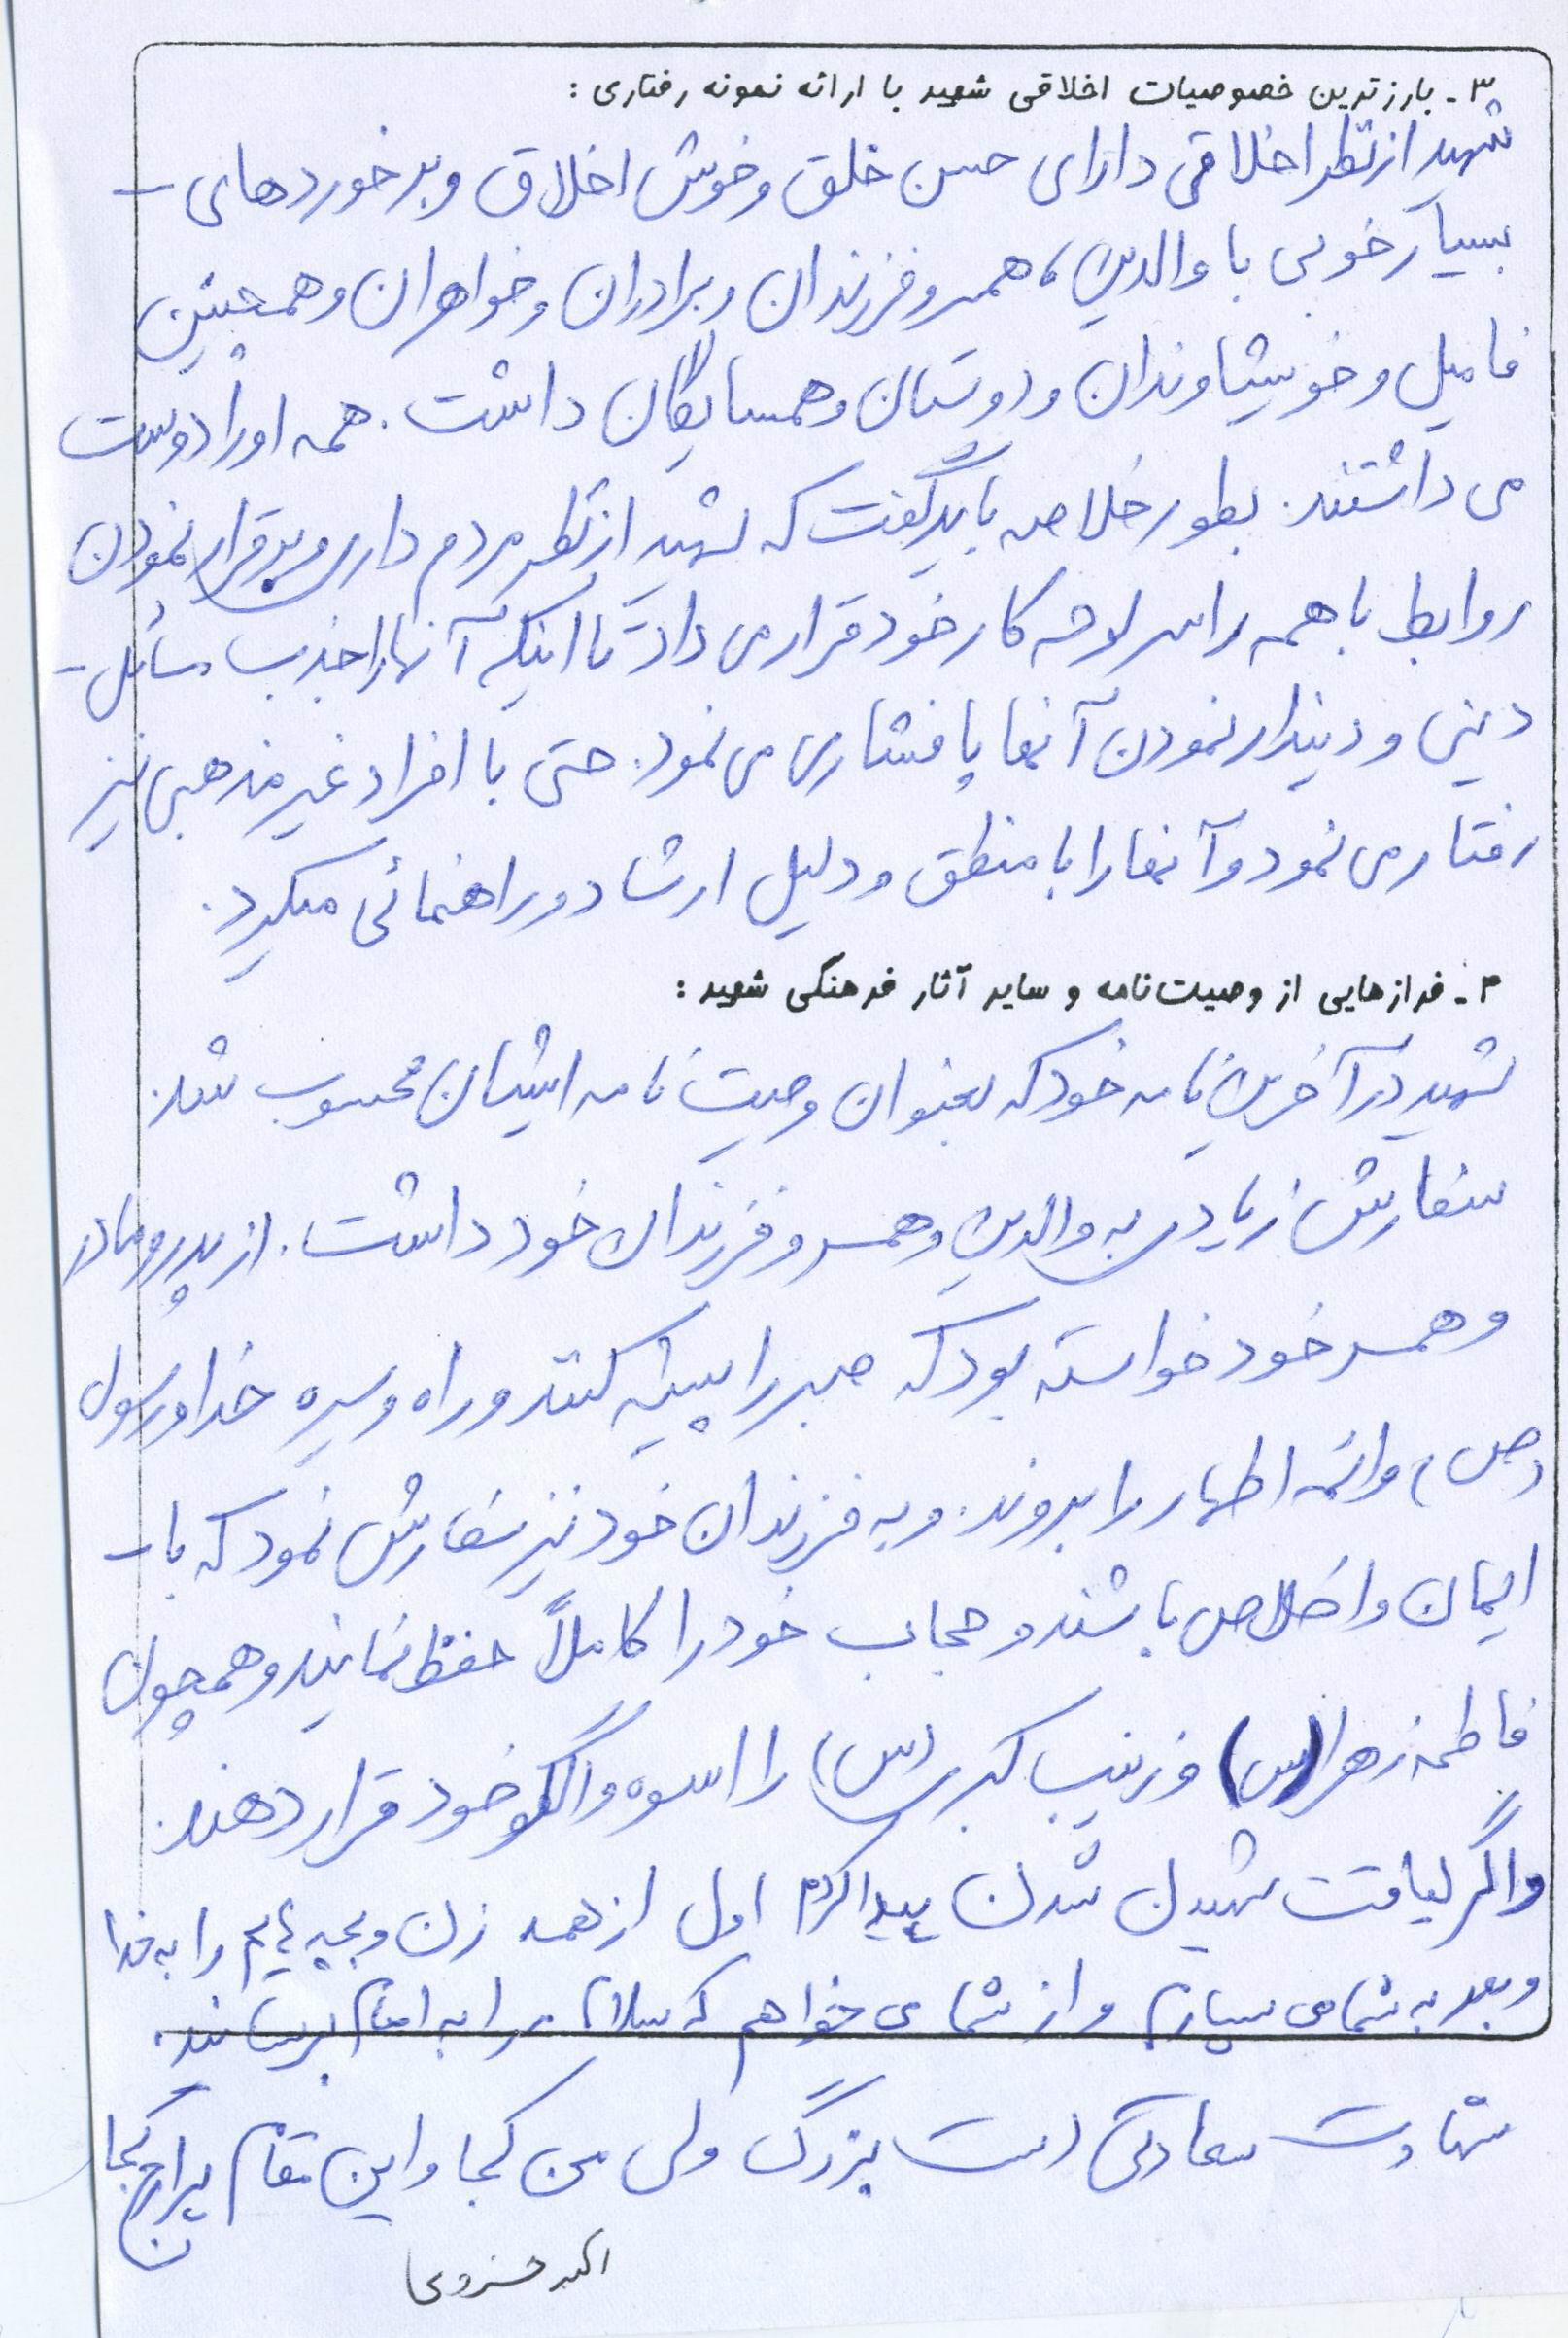 ۳ - بارزترین خصوصیات اخلاقی شهید با ارائه نمونه رفتاری :
شهید از نظر اخلاقی دارای حسن خلق و خوش اخلاق و برخوردهای -
بسیار خوبی با والدین، همسر و فرزندان و برادران و خواهران و همچنین
فامیل و خویشاوندان و دوستان و همسایگان داشت. همه او را دوست
می داشتند. بطور خلاصه باید گفت که شهید از نظر مردم داری و برقرار نمودن
روابط با همه را سر لوحه کار خود قرار می داد تا اینکه آنها را جذب مسائل -
دینی و دیندار نمودن آنها پافشاری می نمود. حتی با افراد غیر مذهبی نیز
رفتار می نمود و آنها را با منطق و دلیل ارشاد و راهنمائی میکرد.
۴ - فرازهایی از وصیت‌نامه و سایر آثار فرهنگی شهید :
شهید در آخرین نامه خود که بعنوان وصیت نامه ایشان محسوب شد.
سفارش زیادی به والدین و همسر و فرزندان خود داشت. از پدر و مادر
و همسر خود خواسته بود که صبر را پیشه کنند و راه و سیره خدا و رسول
(ص) و ائمه اطهار را بروند. و به فرزندان خود نیز سفارش نمود که با -
ایمان و اخلاص باشند و حجاب خود را کاملاً حفظ نمایند و همچون
فاطمه زهرا (س) و زینب کبری (س) را اسوه و الگو خود قرار دهند.
و اگر لیاقت شهیدن شدن پیدا کردم اول از همه زن و بچه هایم را به خدا
و بعد به شما می سپارم و از شما می خواهم که سلام مرا به امام برسانید.
شهادت سعادتی است بزرگ ولی من کجا و این مقام پر ارج کجا
اکبر خسروی